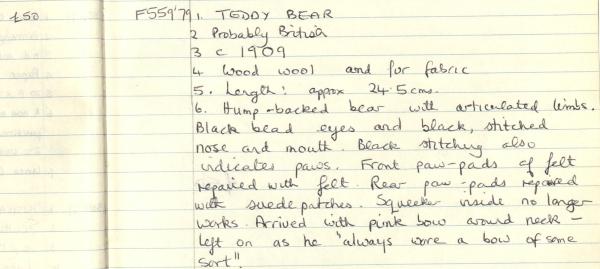 £50 F559'79 1. TEDDY BEAR
2 Probably British
3 c 1909
4 Wood wool and fur fabric
5. Length: approx 24.5cms.
6. Hump-backed bear with articulated limbs.
Black bead eyes and black, stitched
nose and mouth. Black stitching also
indicates paws. Front paw-pads of felt
repaired with felt. Rear paw-pads repaired
with suede patches. Squeeker inside no longer
works. Arrived with pink bow around neck –
left on as he "always wore a bow of some
sort".